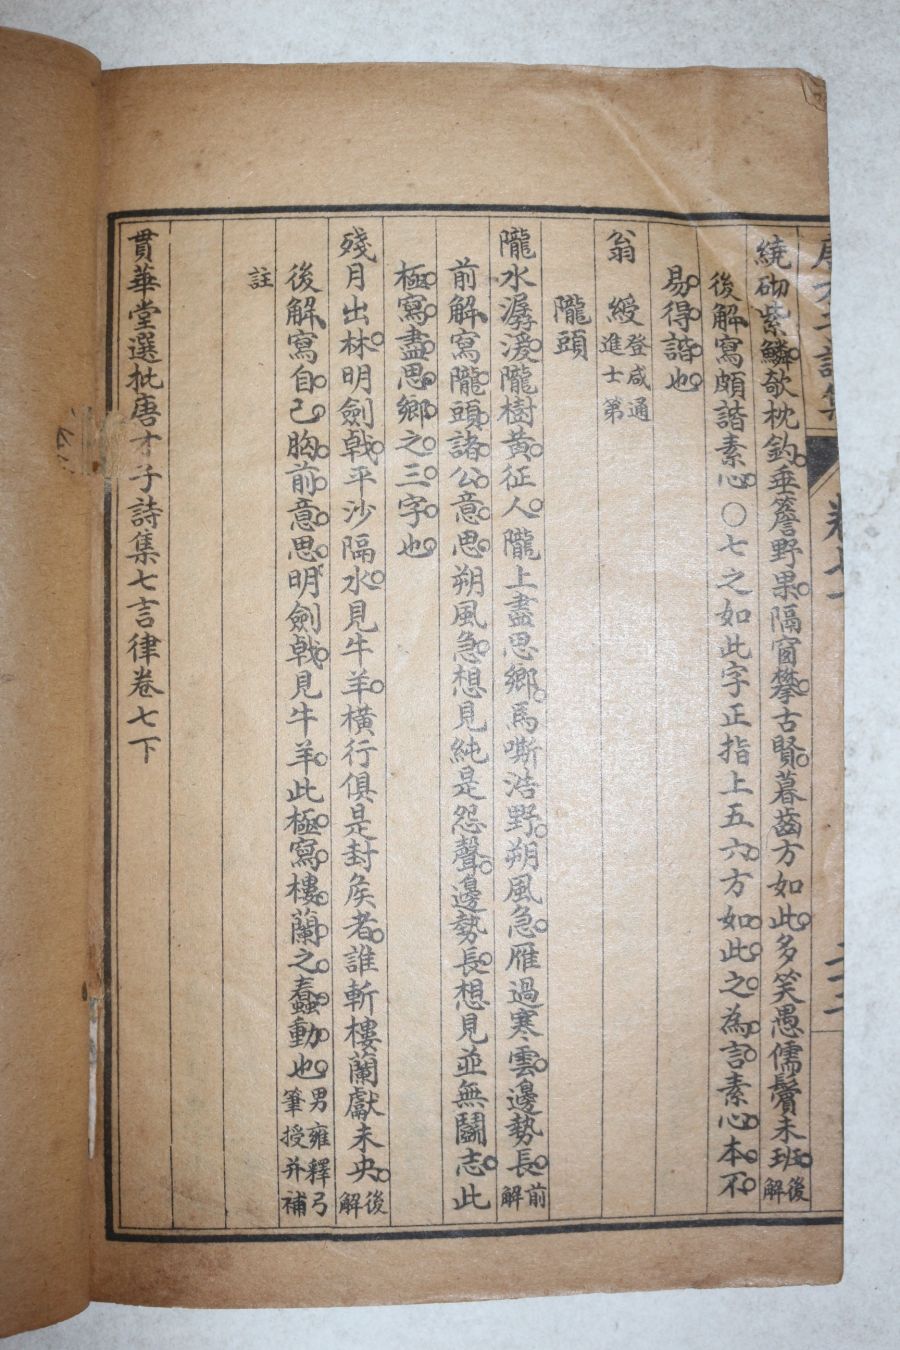 繞砌紫鱗欹枕釣垂簷野果隔窗攀古賢暮齒方如此多笑愚儒鬢未班後解
後解寫頗諧素心〇七之如此字正指上五六方如此之為言素心本不
易得諧也
翁　綬登咸通進士第
隴頭
隴水潺湲隴樹黃征人隴上盡思鄉馬嘶浩野朔風急雁過寒雲邊勢長前解
前解寫隴頭諸公意思朔風急想見純是怨聲邊勢長想見並無鬭志此
極寫盡思鄉之三字也
殘月出林明劍戟平沙隔水見牛羊橫行俱是封矦者誰斬樓蘭獻未央後解
後解寫自己胸前意思明劍戟見牛羊此極寫樓蘭之蠢動也男雍釋弓筆授并補
註
貫華堂選批唐才子詩集七言律卷七下